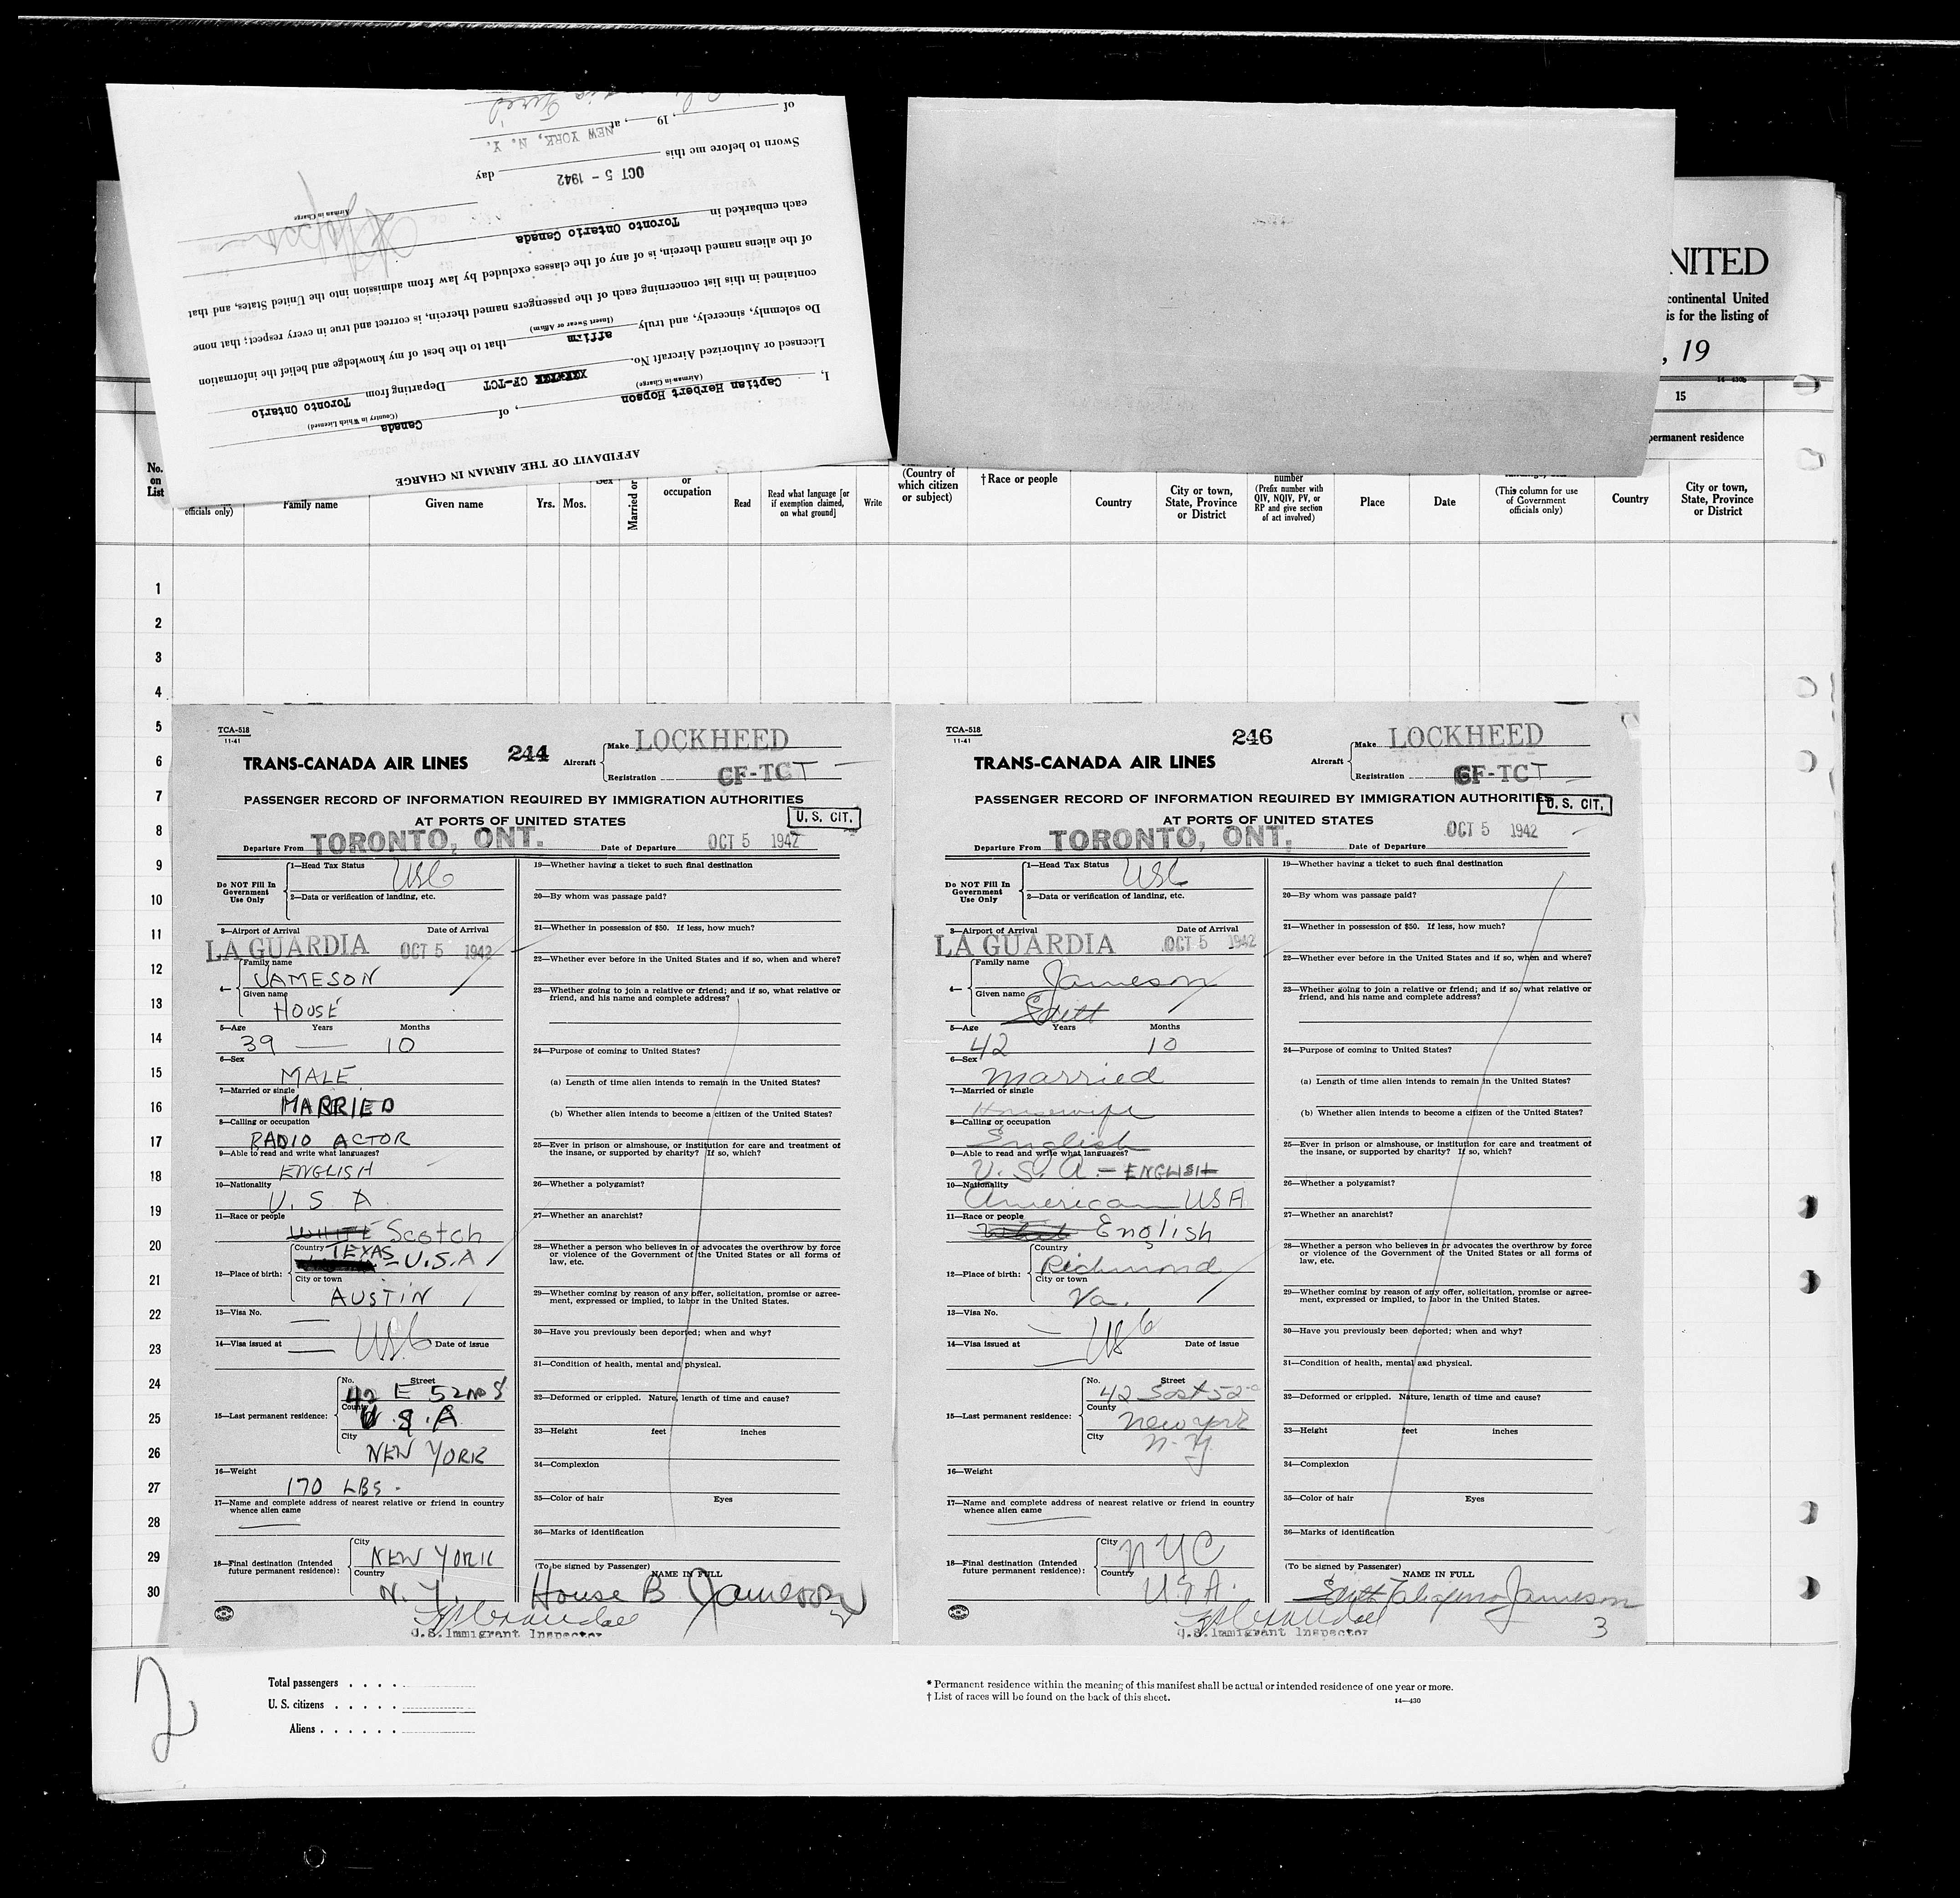 AFFIDAVIT OF THE AIRMAN IN CHARGE
I, Captian Herbert Hopson, of Canada
(Airman in Charge) (Country in Which Licensed)
Licensed or Authorized Aircraft No. CF-TCT Departing from Toronto Ontario
Do solemnly, sincerely, and truly affirm that to the best of my knowledge and belief the information
(Insert Swear or Affirm)
contained in this list concerning each of the passengers named therein, is correct and true in every respect; that none
of the aliens named therein, is of any of the classes excluded by law from admission into the United States, and that
each embarked in Toronto Ontario Canada
Airman in Charge
OCT 5 - 1942
Sworn to before me this day
NEW YORK, N. Y.
of , 19 , at
NITED
continental United
is for the listing of
, 19
14-430b
15
permanent residence
No. on List
officials only)
Family name
Given name
Yrs. Mos.
Sex
Married or
or occupation
Read
Read what language [or if exemption claimed, on what ground]
Write
(Country of which citizen or subject)
†Race or people
Country
City or town, State, Province or District
number
(Prefix number with QIV, NQIV, PV, or RP and give section of act involved)
Place
Date
(This column for use of Government officials only)
Country
City or town, State, Province or District
1
2
3
4
5
6
7
8
9
10
11
12
13
14
15
16
17
18
19
20
21
22
23
24
25
26
27
28
29
30
TCA-518
11-41
244
TRANS-CANADA AIR LINES
Aircraft
Make LOCKHEED
Registration CF-TCT
PASSENGER RECORD OF INFORMATION REQUIRED BY IMMIGRATION AUTHORITIES
AT PORTS OF UNITED STATES
U. S. CIT.
Departure From TORONTO, ONT. Date of Departure OCT 5 1942
Do NOT Fill In Government Use Only
1—Head Tax Status USC
2—Data or verification of landing, etc.
3—Airport of Arrival Date of Arrival
LA GUARDIA OCT 5 1942
4— Family name JAMESON
Given name HOUSE
5—Age Years Months
39 — 10
6—Sex
MALE
7—Married or single
MARRIED
8—Calling or occupation
RADIO ACTOR
9—Able to read and write what languages?
ENGLISH
10—Nationality
U. S. A
11—Race or people
WHITE Scotch
12—Place of birth:
Country TEXAS - U.S.A
City or town
AUSTIN
13—Visa No.
14—Visa issued at USC Date of issue
15—Last permanent residence:
No. Street
42 E 52ND S
County
U.S.A
City
NEW YORK
16—Weight
170 LBS.
17—Name and complete address of nearest relative or friend in country
whence alien came
18—Final destination (Intended
future permanent residence):
City NEW YORK
Country N. Y.
19—Whether having a ticket to such final destination
20—By whom was passage paid?
21—Whether in possession of $50. If less, how much?
22—Whether ever before in the United States and if so, when and where?
23—Whether going to join a relative or friend; and if so, what relative or
friend, and his name and complete address?
24—Purpose of coming to United States?
(a) Length of time alien intends to remain in the United States?
(b) Whether alien intends to become a citizen of the United States?
25—Ever in prison or almshouse, or institution for care and treatment of
the insane, or supported by charity? If so, which?
26—Whether a polygamist?
27—Whether an anarchist?
28—Whether a person who believes in or advocates the overthrow by force
or violence of the Government of the United States or all forms of
law, etc.
29—Whether coming by reason of any offer, solicitation, promise or agree-
ment, expressed or implied, to labor in the United States.
30—Have you previously been deported; when and why?
31—Condition of health, mental and physical.
32—Deformed or crippled. Nature, length of time and cause?
33—Height feet inches
34—Complexion
35—Color of hair Eyes
36—Marks of identification
(To be signed by Passenger) NAME IN FULL
House B Jameson
U.S. Immigrant Inspector
TCA-518
11-41
246
TRANS-CANADA AIR LINES
Aircraft
Make LOCKHEED
Registration CF-TCT
PASSENGER RECORD OF INFORMATION REQUIRED BY IMMIGRATION AUTHORITIES
AT PORTS OF UNITED STATES
U. S. CIT.
Departure From TORONTO, ONT. Date of Departure OCT 5 1942
Do NOT Fill In Government Use Only
1—Head Tax Status USC
2—Data or verification of landing, etc.
3—Airport of Arrival Date of Arrival
LA GUARDIA OCT 5 1942
4— Family name Jameson
Given name Edith
5—Age Years Months
42 10
6—Sex
married
7—Married or single
Housewife
8—Calling or occupation
English
9—Able to read and write what languages?
U. S. A. - ENGLISH
10—Nationality
American USA
11—Race or people
English
12—Place of birth:
Country
Richmond
City or town
Va.
13—Visa No.
14—Visa issued at USC Date of issue
15—Last permanent residence:
No. Street
42 East 52nd
County
New York
City
N. Y.
16—Weight
17—Name and complete address of nearest relative or friend in country
whence alien came
18—Final destination (Intended
future permanent residence):
City NYC
Country U.S.A.
19—Whether having a ticket to such final destination
20—By whom was passage paid?
21—Whether in possession of $50. If less, how much?
22—Whether ever before in the United States and if so, when and where?
23—Whether going to join a relative or friend; and if so, what relative or
friend, and his name and complete address?
24—Purpose of coming to United States?
(a) Length of time alien intends to remain in the United States?
(b) Whether alien intends to become a citizen of the United States?
25—Ever in prison or almshouse, or institution for care and treatment of
the insane, or supported by charity? If so, which?
26—Whether a polygamist?
27—Whether an anarchist?
28—Whether a person who believes in or advocates the overthrow by force
or violence of the Government of the United States or all forms of
law, etc.
29—Whether coming by reason of any offer, solicitation, promise or agree-
ment, expressed or implied, to labor in the United States.
30—Have you previously been deported; when and why?
31—Condition of health, mental and physical.
32—Deformed or crippled. Nature, length of time and cause?
33—Height feet inches
34—Complexion
35—Color of hair Eyes
36—Marks of identification
(To be signed by Passenger) NAME IN FULL
Edith Taliaferro Jameson
U.S. Immigrant Inspector
3
2
Total passengers . . . .
U. S. citizens . . . . .
Aliens . . . . . .
* Permanent residence within the meaning of this manifest shall be actual or intended residence of one year or more.
† List of races will be found on the back of this sheet.
14—430